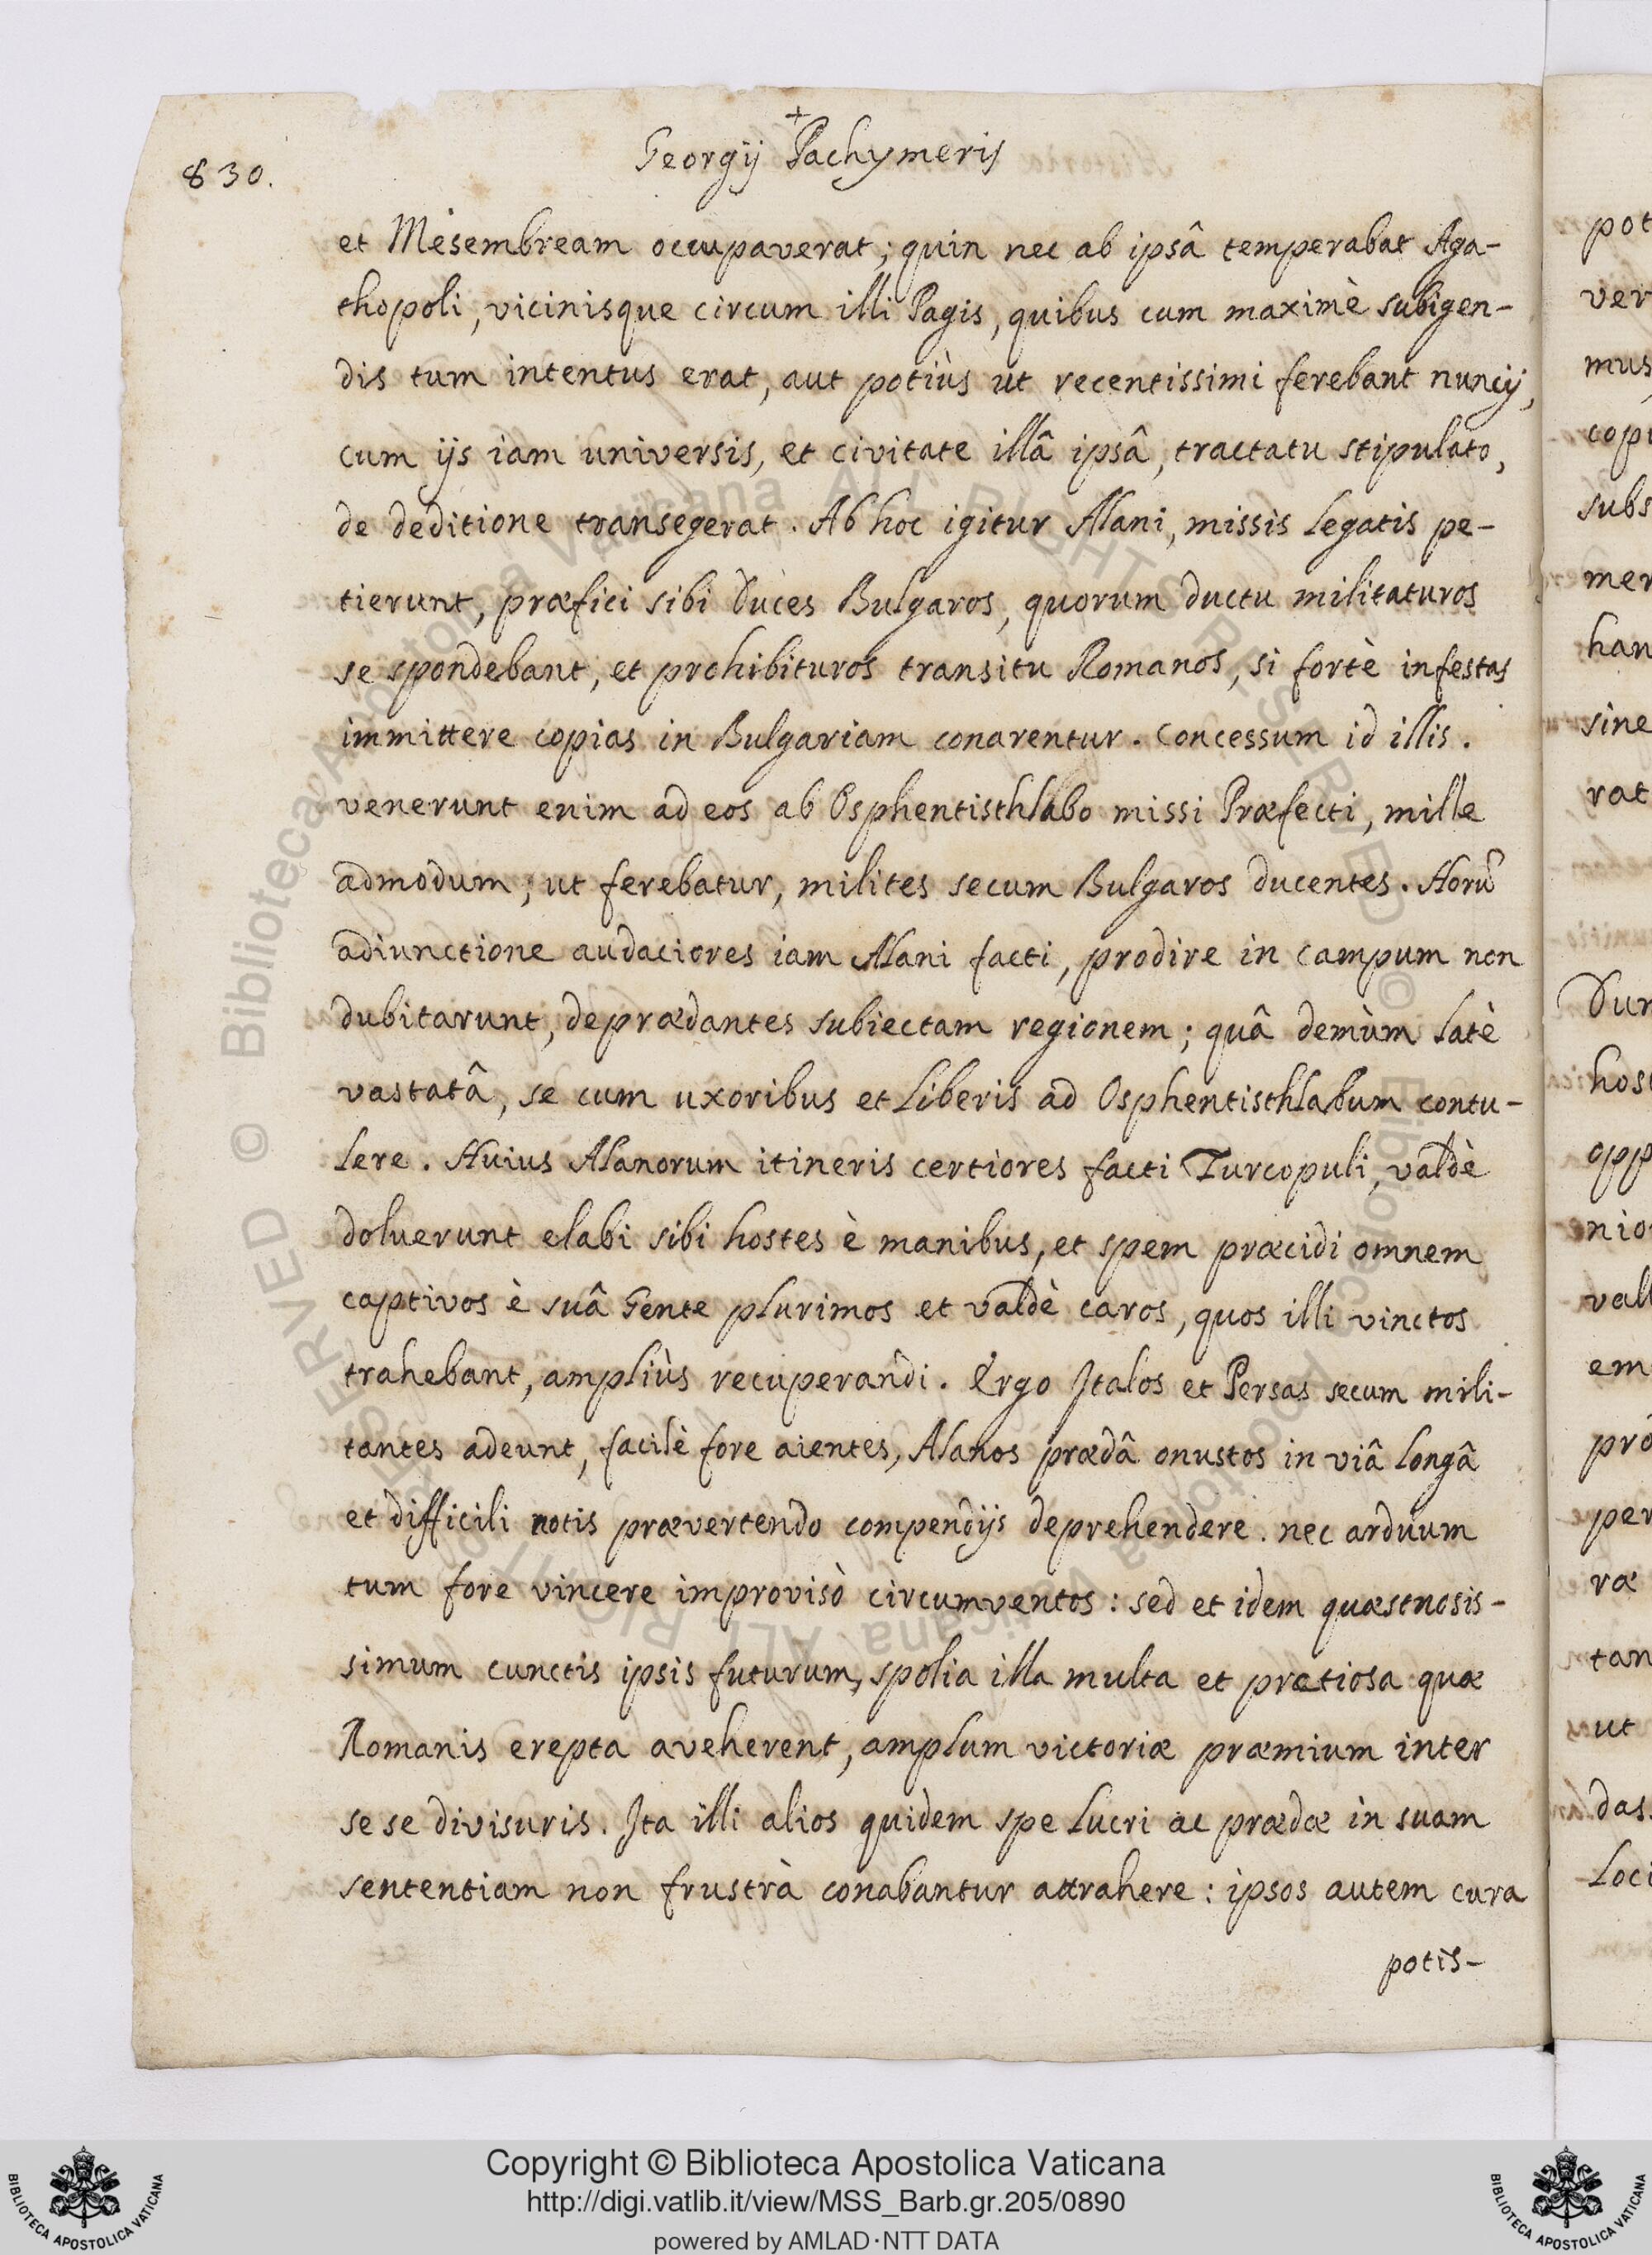 830.
+
Georgij Pachymeris
et Mesembream occupaverat; quin nec ab ipsâ temperabat Aga-
thopoli, vicinisque circum illi Pagis, quibus cum maximè subigen-
dis tum intentus erat, aut potiùs ut recentissimi ferebant nuncij,
cum ijs iam universis, et civitate illâ ipsâ, tractatu stipulato,
de deditione transegerat. Ab hoc igitur Alani, missis Legatis pe-
tierunt, præfici sibi Duces Bulgaros, quorum ductu militaturos
se spondebant, et prohibituros transitu Romanos, si fortè infestas
immittere copias in Bulgariam conarentur. Concessum id illis.
venerunt enim ad eos ab Osphentisthlabo missi Præfecti, mille
admodum, ut ferebatur, milites secum Bulgaros ducentes. Horũ
adiunctione audaciores iam Alani facti, prodire in campum non
dubitarunt, deprædantes subiectam regionem; quâ demùm latè
vastatâ, se cum uxoribus et Liberis ad Osphentisthlabum contu-
lere. Huius Alanorum itineris certiores facti Turcopuli, valdè
doluerunt elabi sibi hostes è manibus, et spem præcidi omnem
captivos è suâ Gente plurimos et valdè caros, quos illi vinctos
trahebant, ampliùs recuperandi. Ergo Italos et Persas secum mili-
tantes adeunt, facilè fore aientes, Alanos prædâ onustos in viâ longâ
et difficili notis prævertendo compendijs deprehendere. nec arduum
tum fore vincere improvisò circumventos: sed et idem quæstuosis-
simum cunctis ipsis futurum, spolia illa multa et prætiosa quæ
Romanis erepta aveherent, amplum victoriæ præmium inter
se se divisuris. Ita illi alios quidem spe lucri ac prædæ in suam
sententiam non frustrà conabantur attrahere: ipsos autem cura
potis-
pot
ver
mus
copi
subs
mer
han
sine
rat
Dur
host
opp
nio
vall
em
pro
per
ræ
tan
ut
das.
Loci
© Biblioteca Apostolica Vaticana ALL RIGHTS RESERVED © Biblioteca Apostolica Vaticana ALL RIGHTS RESERVED
Copyright © Biblioteca Apostolica Vaticana
http://digi.vatlib.it/view/MSS_Barb.gr.205/0890
powered by AMLAD·NTT DATA
BIBLIOTECA APOSTOLICA VATICANA
BIBLIOTECA APOSTOLICA VATICANA